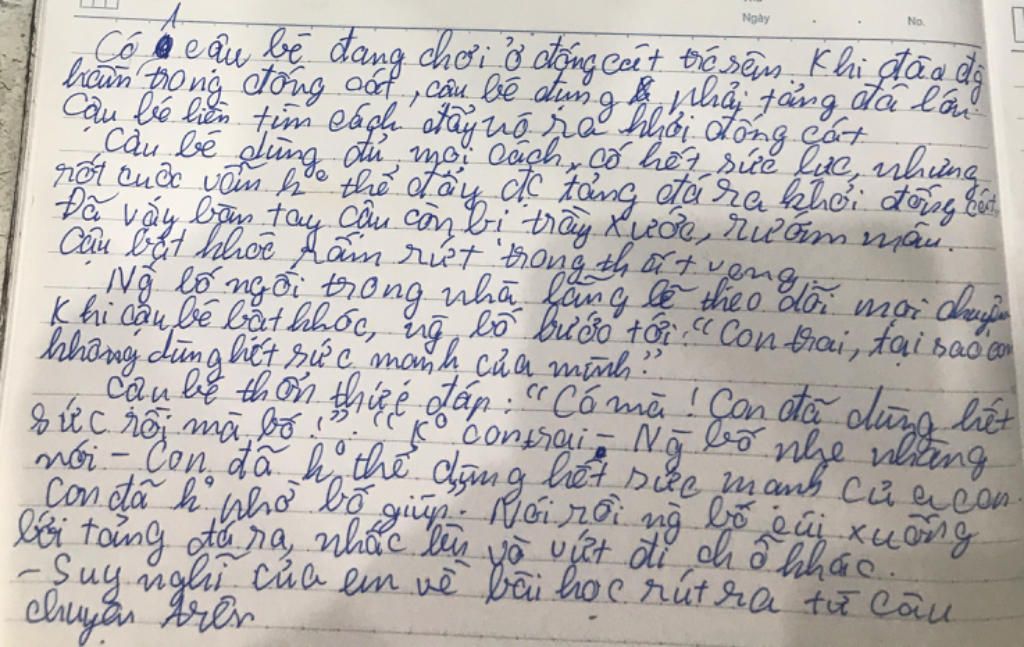 Ngày . . No.
Có 1 cậu bé đang chơi ở đống cát trc sân. Khi đào đg
hầm trong đống cát, cậu bé đụng phải tảng đá lớn
Cậu bé liền tìm cách đẩy nó ra khỏi đống cát
Cậu bé dùng đủ mọi cách, cố hết sức lực, nhưng
rốt cuộc vẫn k° thể đẩy đc tảng đá ra khỏi đống cát.
Đã vậy bàn tay cậu còn bị trầy xước, rướm máu.
Cậu bật khóc rấm rứt trong thất vọng
Ng bố ngồi trong nhà lặng lẽ theo dõi mọi chuyện
Khi cậu bé bật khóc, ng bố bước tới: "Con trai, tại sao con
không dùng hết sức mạnh của mình?"
Cậu bé thổn thức đáp: "Có mà! Con đã dùng hết
sức rồi mà bố!". "K° con trai - Ng bố nhẹ nhàng
nói - Con đã k° thể dụng hết sức mạnh của con.
Con đã k° nhờ bố giúp". Nói rồi ng bố cúi xuống
bới tảng đá ra, nhấc lên và vứt đi chỗ khác.
- Suy nghĩ của em về bài học rút ra từ câu
chuyện trên